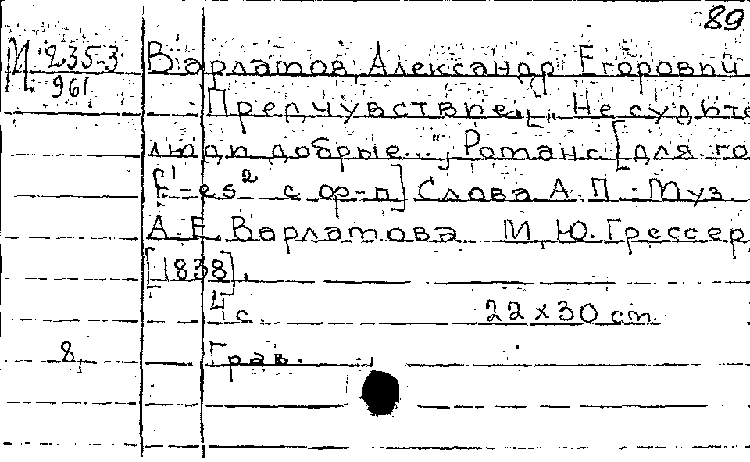 89
М 235-3 Варламов, Александр Егорович
961 Предчувствие. [„Не судите
люди добрые...“]. Романс [для го
f¹-es² с ф-п] Слова А. П. Муз.
А. Е. Варламова М., Ю. Грессер,
[1838].
4 с. 22 х 30 cm
8, Грав.